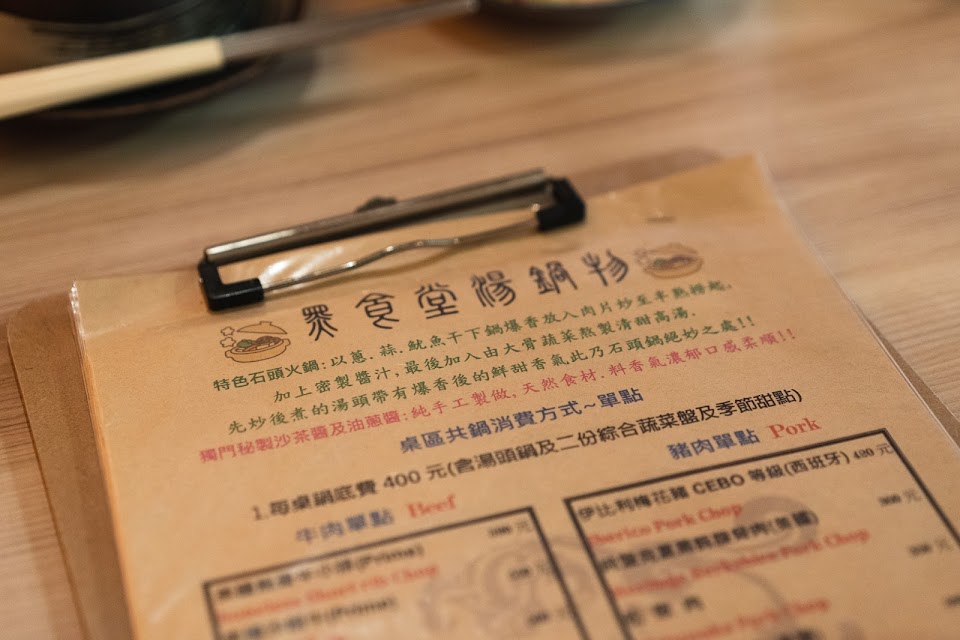 食堂湯鍋物
特色石頭火鍋:以蔥.蒜.魷魚干下鍋爆香放入肉片炒至半熟撈起,
加上密製醬汁,最後加入由大骨蔬菜熬製清甜高湯.
先炒後煮的湯頭帶有爆香後的鮮甜香氣,此乃石頭鍋絕妙之處!!
獨門秘製沙茶醬及油蔥醬:純手工製做,天然食材.料香氣濃郁口感柔順!!
桌區共鍋消費方式~單點
1.每桌鍋底費 400 元(含湯頭鍋及二份綜合蔬菜盤及季節甜點)
牛肉單點 Beef
(Prime)
Short rib Chop
(Prime)
豬肉單點 Pork
伊比利梅花豬 CEBO 等級(西班牙) 420 元
Iberico Pork Chop
300 元
Pork Chop